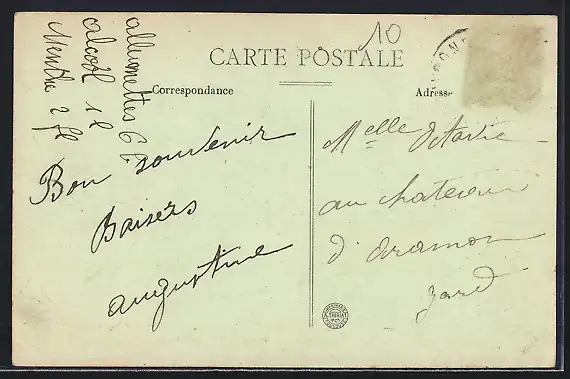 10
CARTE POSTALE
Correspondance
Adresse
allumettes 6 b
alcool 1 l
Menthe 2 fl
Bon souvenir
Baisers
augustine
Melle Octavie
au chateau
d'aramon
gard